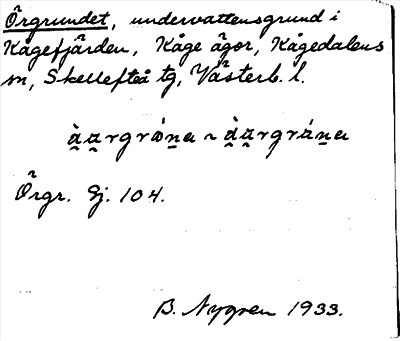 Örgrundet, undervattensgrund i
Kågefjärden, Kåge ägor, Kågedalens
sn, Skellefteå tg, Västerb. l.
Örgr. Ej. 104.
B. Nygren 1933.